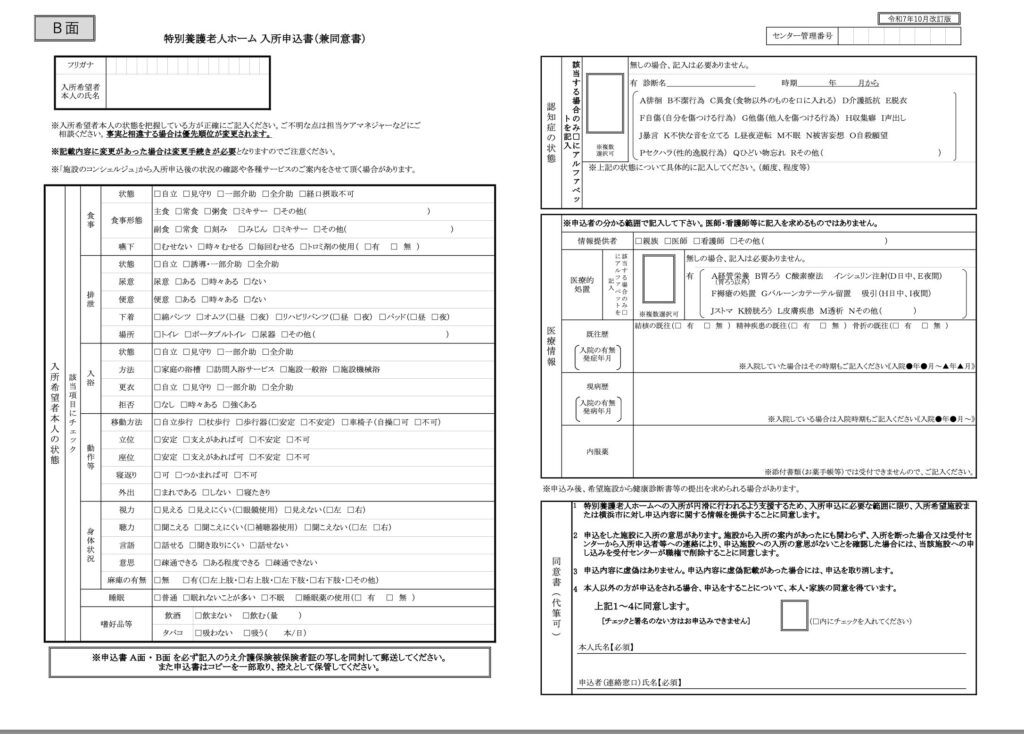 B面
特別養護老人ホーム 入所申込書（兼同意書）
令和7年10月改訂版
センター管理番号
フリガナ
入所希望者
本人の氏名
※入所希望者本人の状態を把握している方が正確にご記入ください。ご不明な点は担当ケアマネジャーなどにご
相談ください。事実と相違する場合は優先順位が変更されます。
※記載内容に変更があった場合は変更手続きが必要となりますのでご注意ください。
※「施設のコンシェルジュ」から入所申込後の状況の確認や各種サービスのご案内をさせて頂く場合があります。
入所希望者本人の状態
該当項目にチェック
食事
状態 □自立 □見守り □一部介助 □全介助 □経口摂取不可
食事形態
主食 □常食 □粥食 □ミキサー □その他( )
副食 □常食 □刻み □みじん □ミキサー □その他( )
嚥下 □むせない □時々むせる □毎回むせる □トロミ剤の使用( □有 □無 )
排泄
状態 □自立 □誘導・一部介助 □全介助
尿意 尿意 □ある □時々ある □ない
便意 便意 □ある □時々ある □ない
下着 □綿パンツ □オムツ(□昼 □夜) □リハビリパンツ(□昼 □夜) □パッド(□昼 □夜)
場所 □トイレ □ポータブルトイレ □尿器 □その他( )
入浴
状態 □自立 □見守り □一部介助 □全介助
方法 □家庭の浴槽 □訪問入浴サービス □施設一般浴 □施設機械浴
更衣 □自立 □見守り □一部介助 □全介助
拒否 □なし □時々ある □強くある
動作等
移動方法 □自立歩行 □杖歩行 □歩行器(□安定 □不安定) □車椅子(自操□可 □不可)
立位 □安定 □支えがあれば可 □不安定 □不可
座位 □安定 □支えがあれば可 □不安定 □不可
寝返り □可 □つかまれば可 □不可
外出 □まれである □しない □寝たきり
身体状況
視力 □見える □見えにくい(□眼鏡使用) □見えない(□左 □右)
聴力 □聞こえる □聞こえにくい(□補聴器使用) □聞こえない(□左 □右)
言語 □話せる □聞き取りにくい □話せない
意思 □疎通できる □ある程度できる □疎通できない
麻痺の有無 □無 □有(□左上肢・□右上肢・□左下肢・□右下肢・□その他)
睡眠 □普通 □眠れないことが多い □不眠 □睡眠薬の使用(□ 有 □ 無 )
嗜好品等
飲酒 □飲まない □飲む(量 )
タバコ □吸わない □吸う( 本/日)
※申込書 A面・B面 を必ず記入のうえ介護保険被保険者証の写しを同封して郵送してください。
また申込書はコピーを一部取り、控えとして保管してください。
認知症の状態
該当する場合のみ□にアルファベットを記入
※複数選択可
無しの場合、記入は必要ありません。
有 診断名 時期 年 月から
A徘徊 B不潔行為 C異食(食物以外のものを口に入れる) D介護抵抗 E脱衣
F自傷(自分を傷つける行為) G他傷(他人を傷つける行為) H収集癖 I声出し
J暴言 K不快な音を立てる L昼夜逆転 M不眠 N被害妄想 O自殺願望
Pセクハラ(性的逸脱行為) Qひどい物忘れ Rその他( )
※上記の状態について具体的に記入してください。(頻度、程度等)
医療情報
※申込者の分かる範囲で記入して下さい。医師・看護師等に記入を求めるものではありません。
情報提供者 □親族 □医師 □看護師 □その他( )
医療的
処置
該当する場合のみ□にアルファベットを記入
※複数選択可
無しの場合、記入は必要ありません。
有 A経管栄養 B胃ろう C酸素療法 インシュリン注射(D日中、E夜間)
(胃ろう以外)
F褥瘡の処置 Gバルーンカテーテル留置 吸引(H日中、I夜間)
Jストマ K膀胱ろう L皮膚疾患 M透析 Nその他( )
既往歴
入院の有無
発症年月
結核の既往(□ 有 □ 無 ) 精神疾患の既往(□ 有 □ 無 ) 骨折の既往(□ 有 □ 無 )
※入院していた場合はその時期もご記入ください(入院●年●月～▲年▲月)
現病歴
入院の有無
発病年月
※入院している場合は入院時期もご記入ください(入院●年●月～)
内服薬
※添付書類(お薬手帳等)では受付できませんので、ご記入ください。
※申込み後、希望施設から健康診断書等の提出を求められる場合があります。
同意書（代筆可）
1 特別養護老人ホームへの入所が円滑に行われるよう支援するため、入所申込に必要な範囲に限り、入所希望施設ま
たは横浜市に対し申込内容に関する情報を提供することに同意します。
2 申込をした施設に入所の意思があります。施設から入所の案内があったにも関わらず、入所を断った場合又は受付セ
ンターから入所申込者等への連絡により、申込施設への入所の意思がないことを確認した場合には、当該施設への申
し込みを受付センターが職権で削除することに同意します。
3 申込内容に虚偽はありません。申込内容に虚偽記載があった場合には、申込を取り消します。
4 本人以外の方が申込をされる場合、申込をすることについて、本人・家族の同意を得ています。
上記1～4に同意します。
[チェックと署名のない方はお申込みできません]
(□内にチェックを入れてください)
本人氏名【必須】
申込者(連絡窓口)氏名【必須】